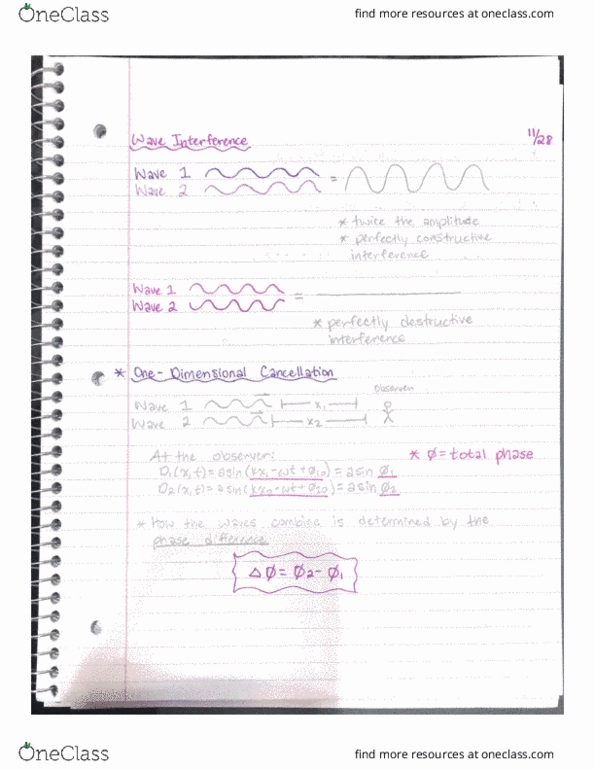 OneClass
find more resources at oneclass.com
Wave Interference
11/28
Wave 1
=
Wave 2
* twice the amplitude
* perfectly constructive
interference
Wave 1
=
Wave 2
* perfectly destructive
interference
* One-Dimensional Cancellation
Observer
Wave 1 x₁
Wave 2 x₂
At the observer:
* Ø = total phase
D₁(x,t) = a sin(kx₁-ωt+Ø₁₀) = a sin Ø₁
D₂(x,t) = a sin(kx₂-ωt+Ø₂₀) = a sin Ø₂
* How the waves combine is determined by the
phase difference
Δ Ø = Ø₂ - Ø₁
OneClass
find more resources at oneclass.com